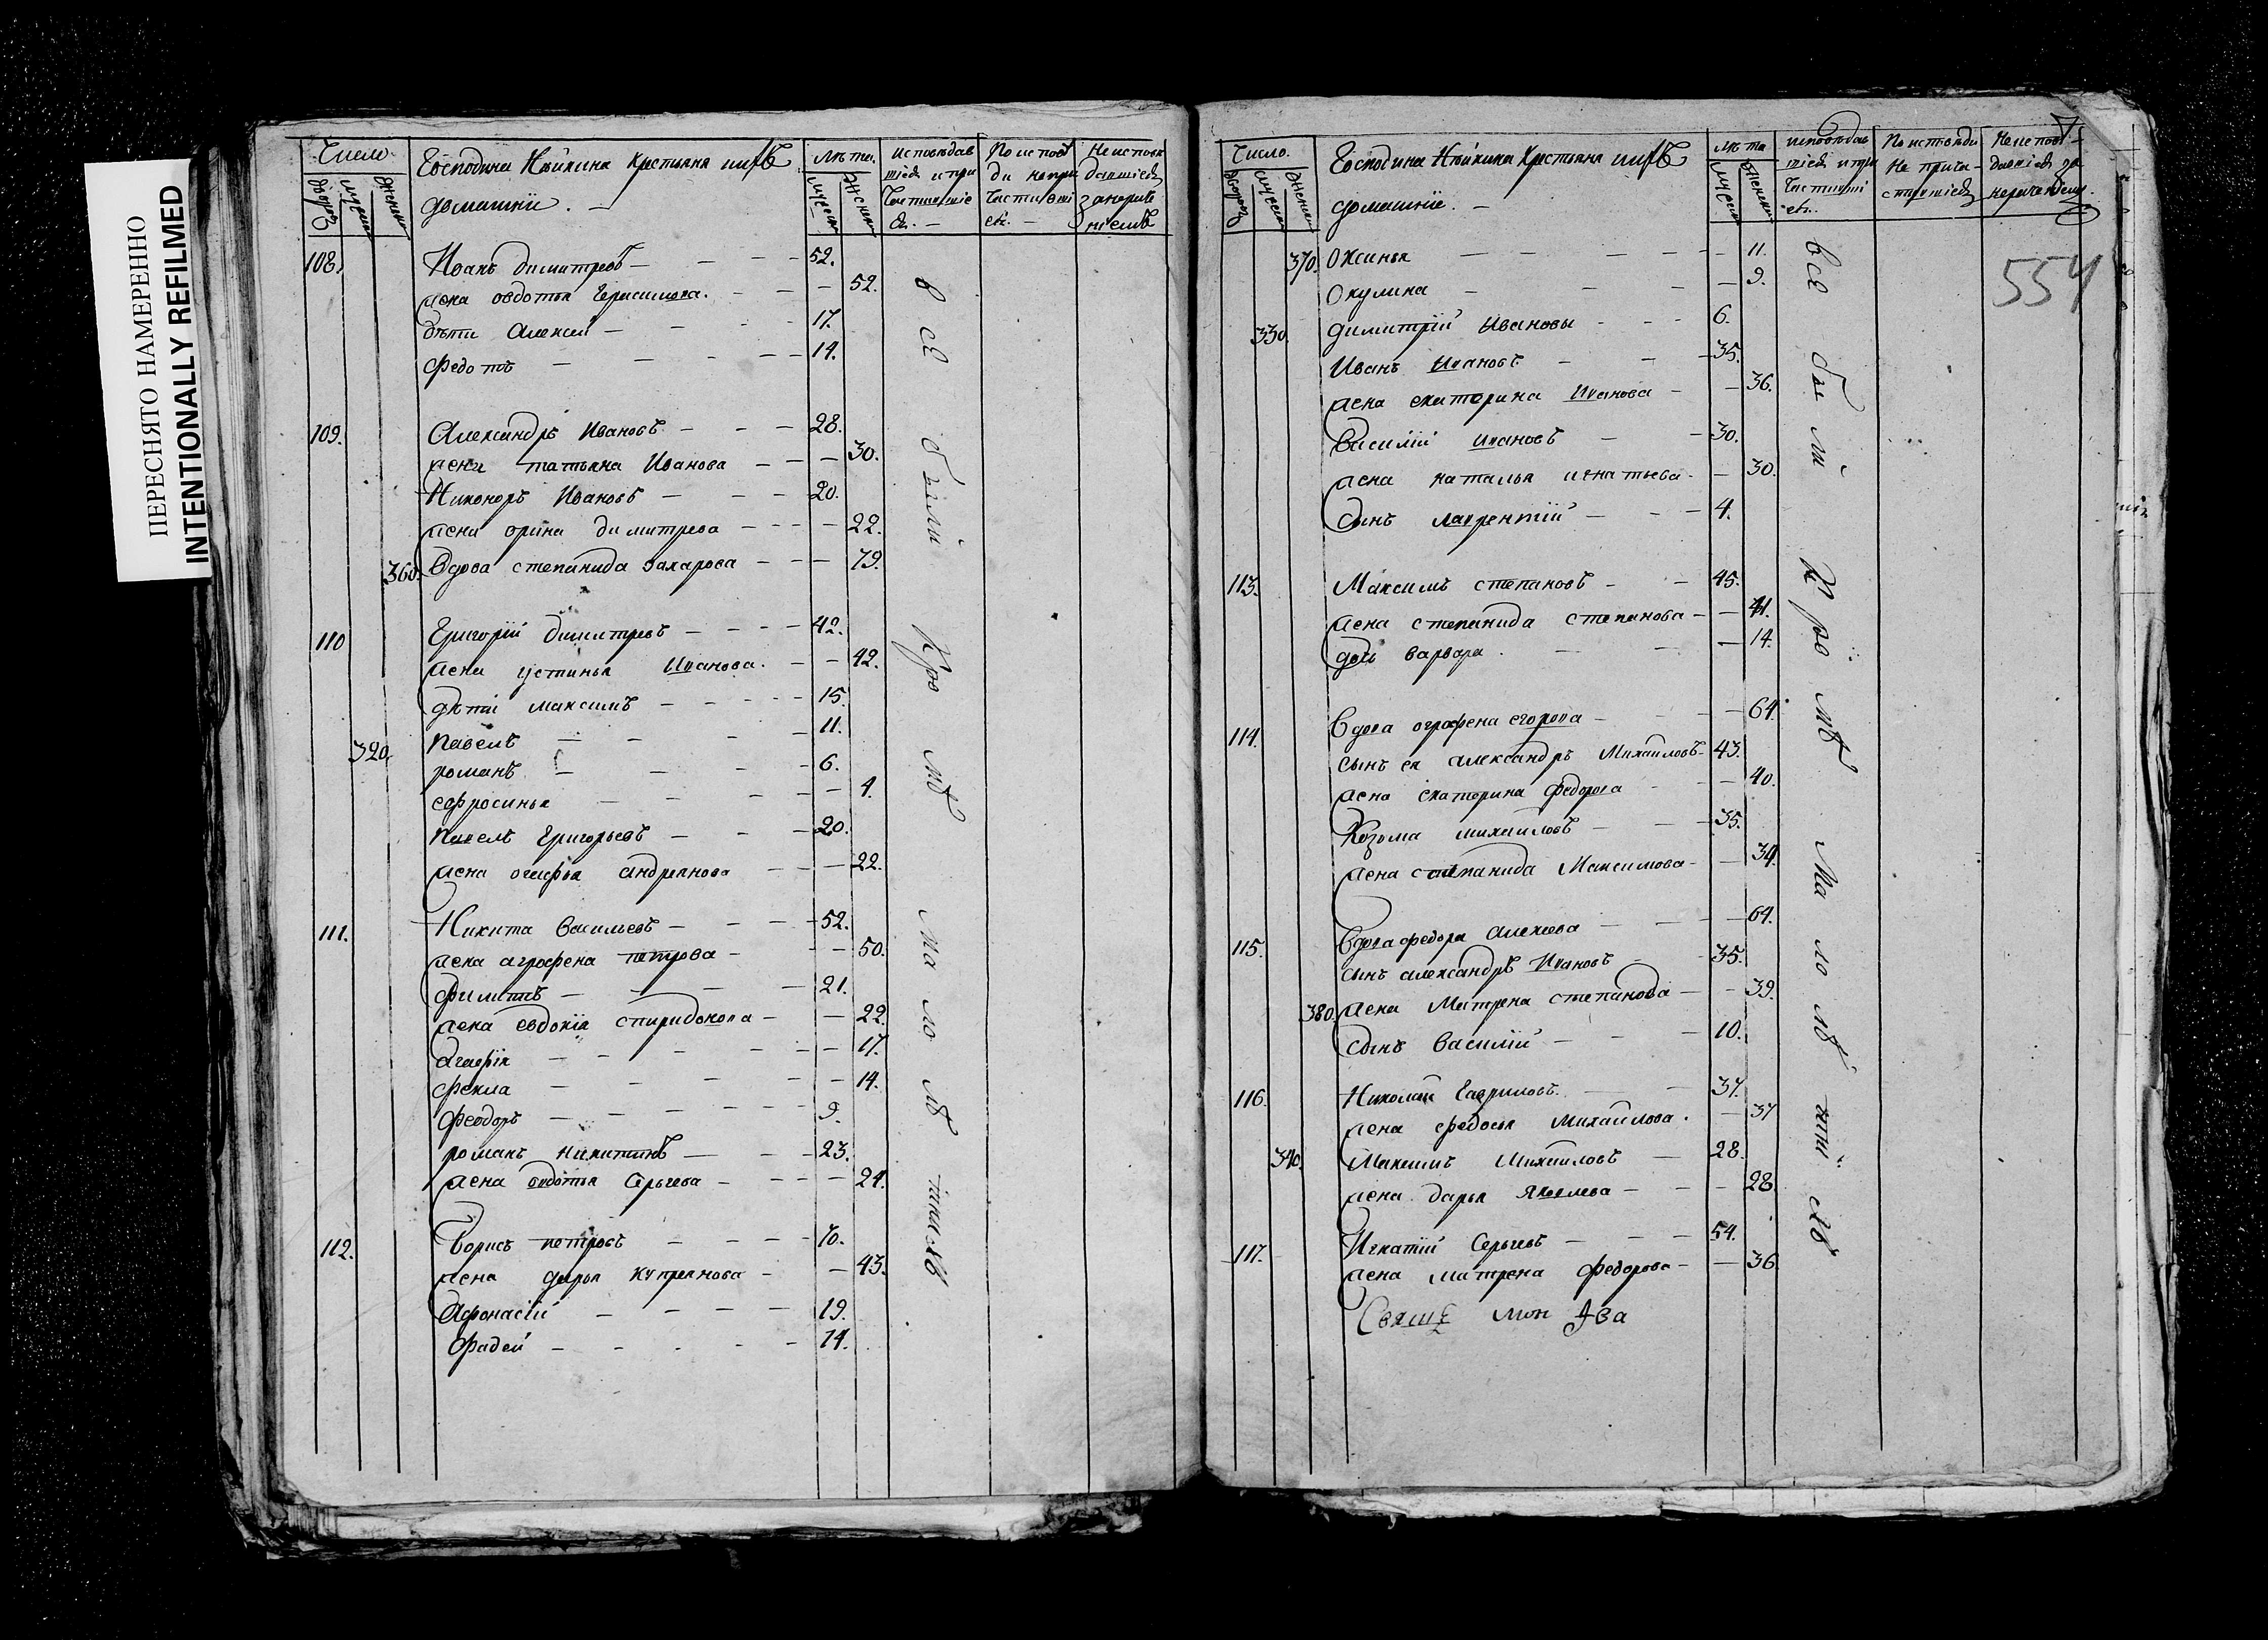 ПЕРЕСНЯТО НАМЕРЕННО
INTENTIONALLY REFILMED
Число
дворовъ мужеска женска
Господина Нѣйкина Крестьяня ихъ
домашніи. —
Лѣта.
мужеска женска
Исповѣдав
шіеся и при
частившіе
ся. —
По исповѣ
ди непри
частивші
еся. —
Не исповѣ
давшіеся
за нерачѣ
ніемъ
108. Иванъ димитревъ — 52.
жена овдотья Герасимова. — 52.
дѣти Алексей — 17.
Федотъ — 14.
109. Александръ Ивановъ — 28.
жена татьяна Иванова — 30.
Никоноръ Ивановъ — 20.
жена орина димитрева — 22.
360. Вдова степанида Захарова — 79.
110 Григорій димитревъ — 42.
жена устинья Иванова. — 42.
дѣти максимъ — 15.
Павелъ — 11.
320. романъ — 6.
ефросинья — 4.
Павелъ Григорьевъ — 20.
жена огафья андреянова — 22.
111. Никита Васильевъ — 52.
жена аграфена петрова — 50.
Филипъ — 21.
жена евдокія спиридонова — 22.
Агафія — 17.
Фекла — 14.
Феодоръ — 9.
романъ никитинъ — 23.
жена овдотья Сергева — 24.
112. Борисъ петровъ — 70.
жена дарья купреянова — 43.
Афонасій — 19.
Фадей — 14.
всѣ были Кромѣ малолѣтнихъ
Число.
дворовъ мужеска женска
Господина Нѣйкина Крестьяня ихъ
домашніе. —
Лѣта
мужеска женска
исповѣдав
шіеся и при
частивші
еся.
По исповѣди
не прича-
стившіеся
Не исповѣ-
давшіеся за
нераченіемъ.
554
370. Оксинья — 11.
Окулина — 9.
330. димитрій Ивановы — 6.
Иванъ Ивановъ — 35.
жена екатерина Иванова — 36.
Василій Ивановъ — 30.
жена наталья игнатьева — 30.
Сынъ лаврентій — 4.
113. Максимъ степановъ — 45.
жена степанида степанова — 41.
дочь варвара. — 14.
114. Вдова ографена егорова — 64.
сынъ ея александръ Михайловъ — 43.
жена екатерина федорова — 40.
Козьма михайловъ — 35.
жена степанида Максимова — 34.
115. Вдова федора алексева — 64.
сынъ александръ Ивановъ — 35.
380. жена Матрена степанова — 39.
сынъ Василій — 10.
116. Николай Гавриловъ. — 37.
жена федосья михайлова. — 37
340. Максимъ Михайловъ — 28.
жена дарья Яковлева — 28.
117. Игнатій Сергевъ — 54.
жена матрена федорова — 36
всѣ были Кромѣ малолѣтнихъ